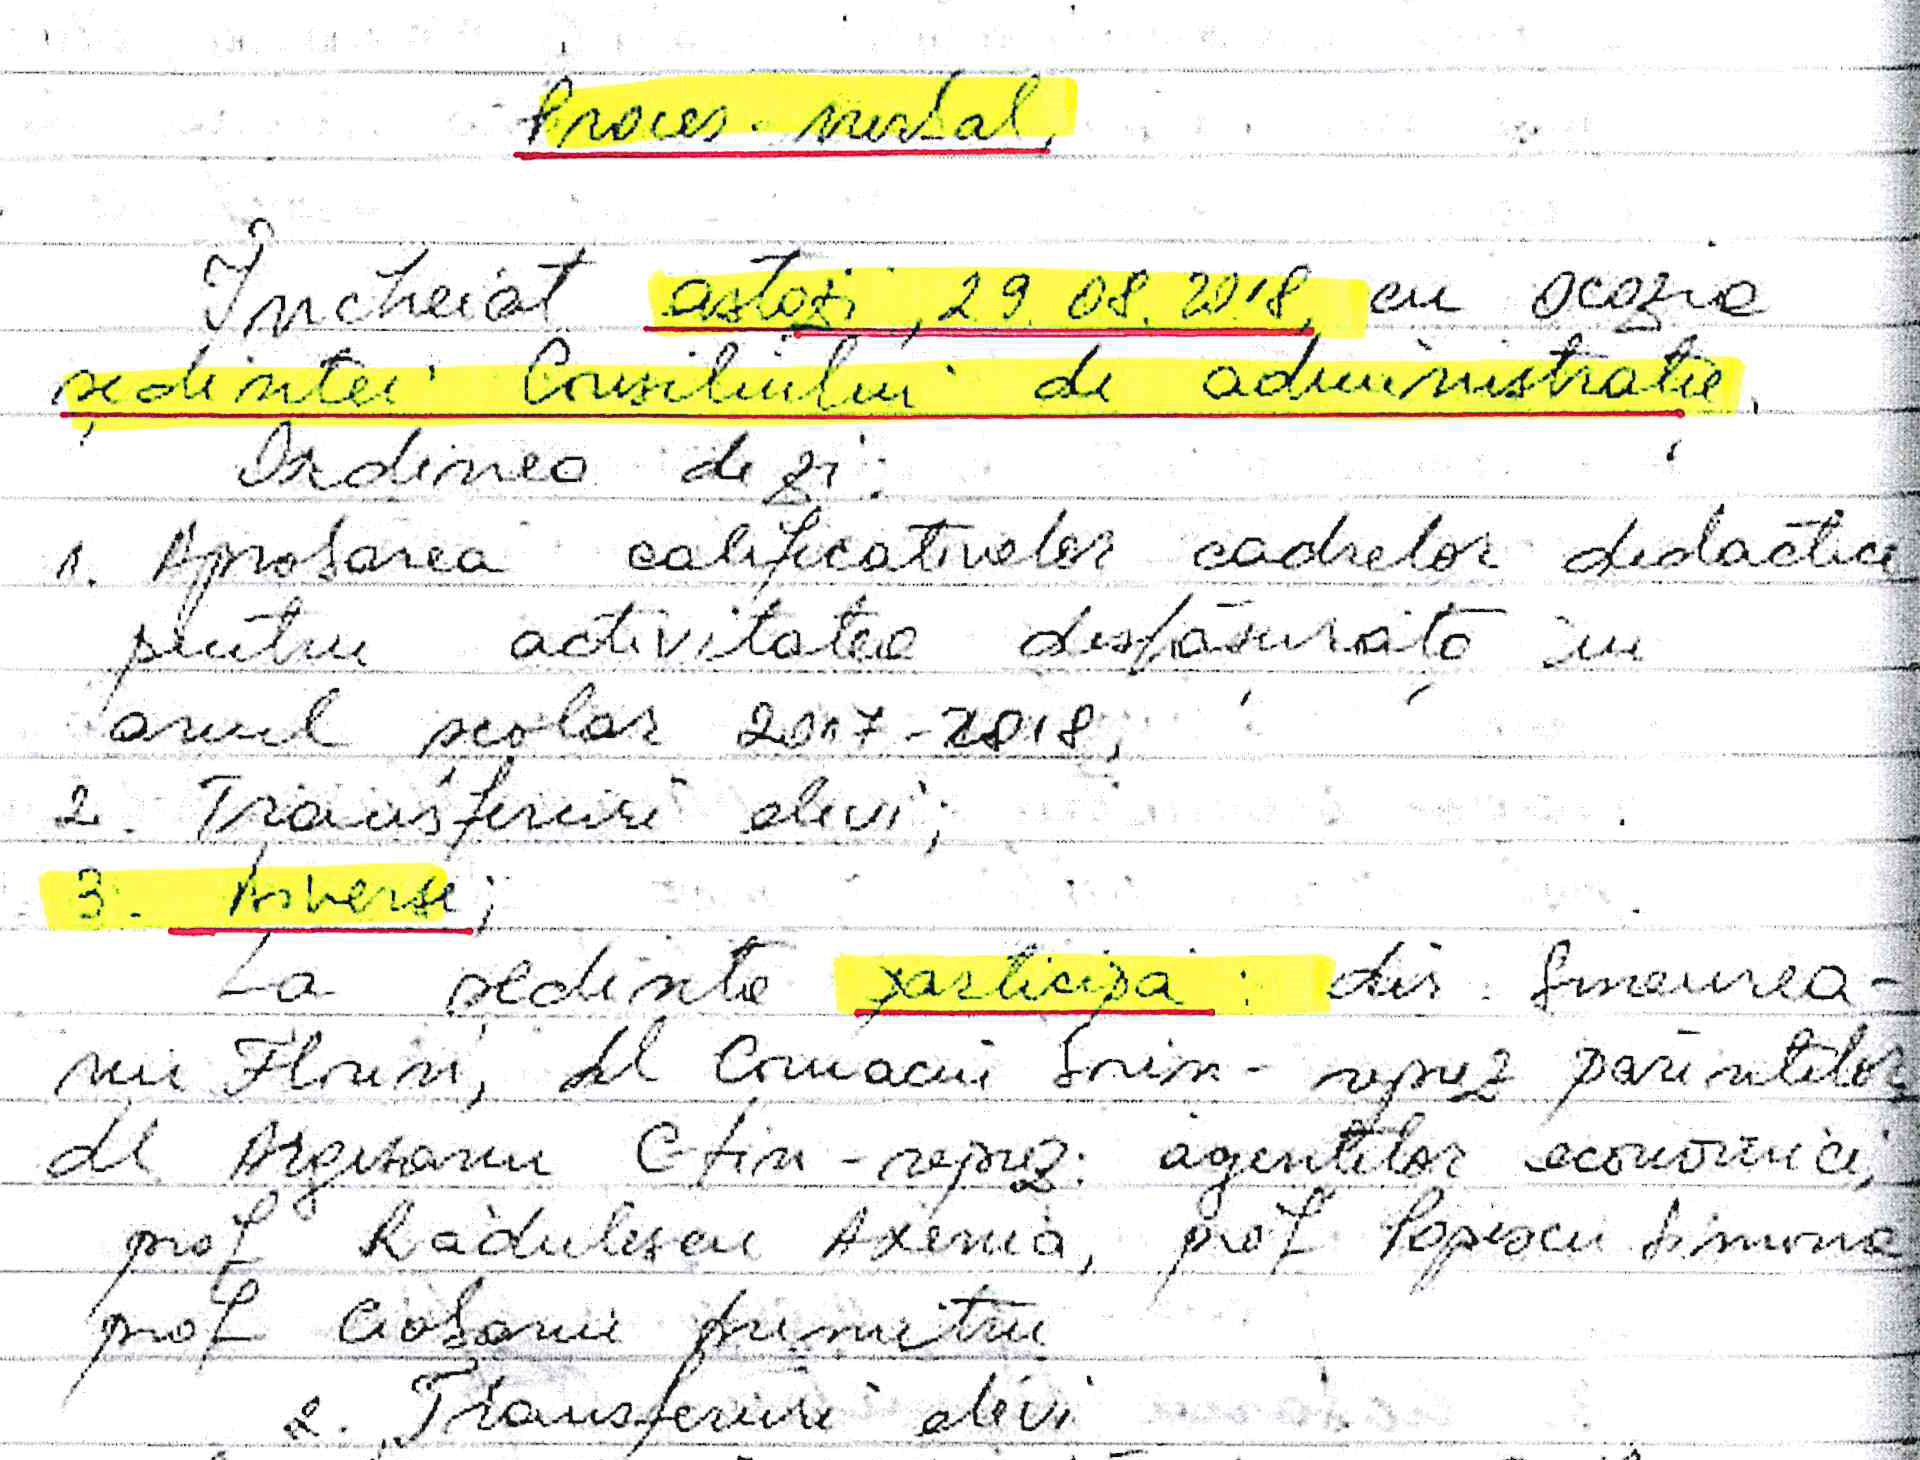 Proces - verbal,
Încheiat astazi, 29.08.2018, cu ocazia
ședintei Consiliului de administrație.
Ordinea de zi:
1. Aprobarea calificativelor cadrelor didactice
pentru activitatea desfășurată în
anul școlar 2017-2018;
2. Transferuri elevi;
3. Diverse;
La ședinta participa: dir. Smeurea-
nu Florin, dl Comaciu Sorin - reprez părintilor
dl Argesanu C-tin - reprez. agentilor economici,
prof Rădulescu Axenia, prof Popescu Simona
prof Ciobanu Dumitru
2. Transferuri elevi